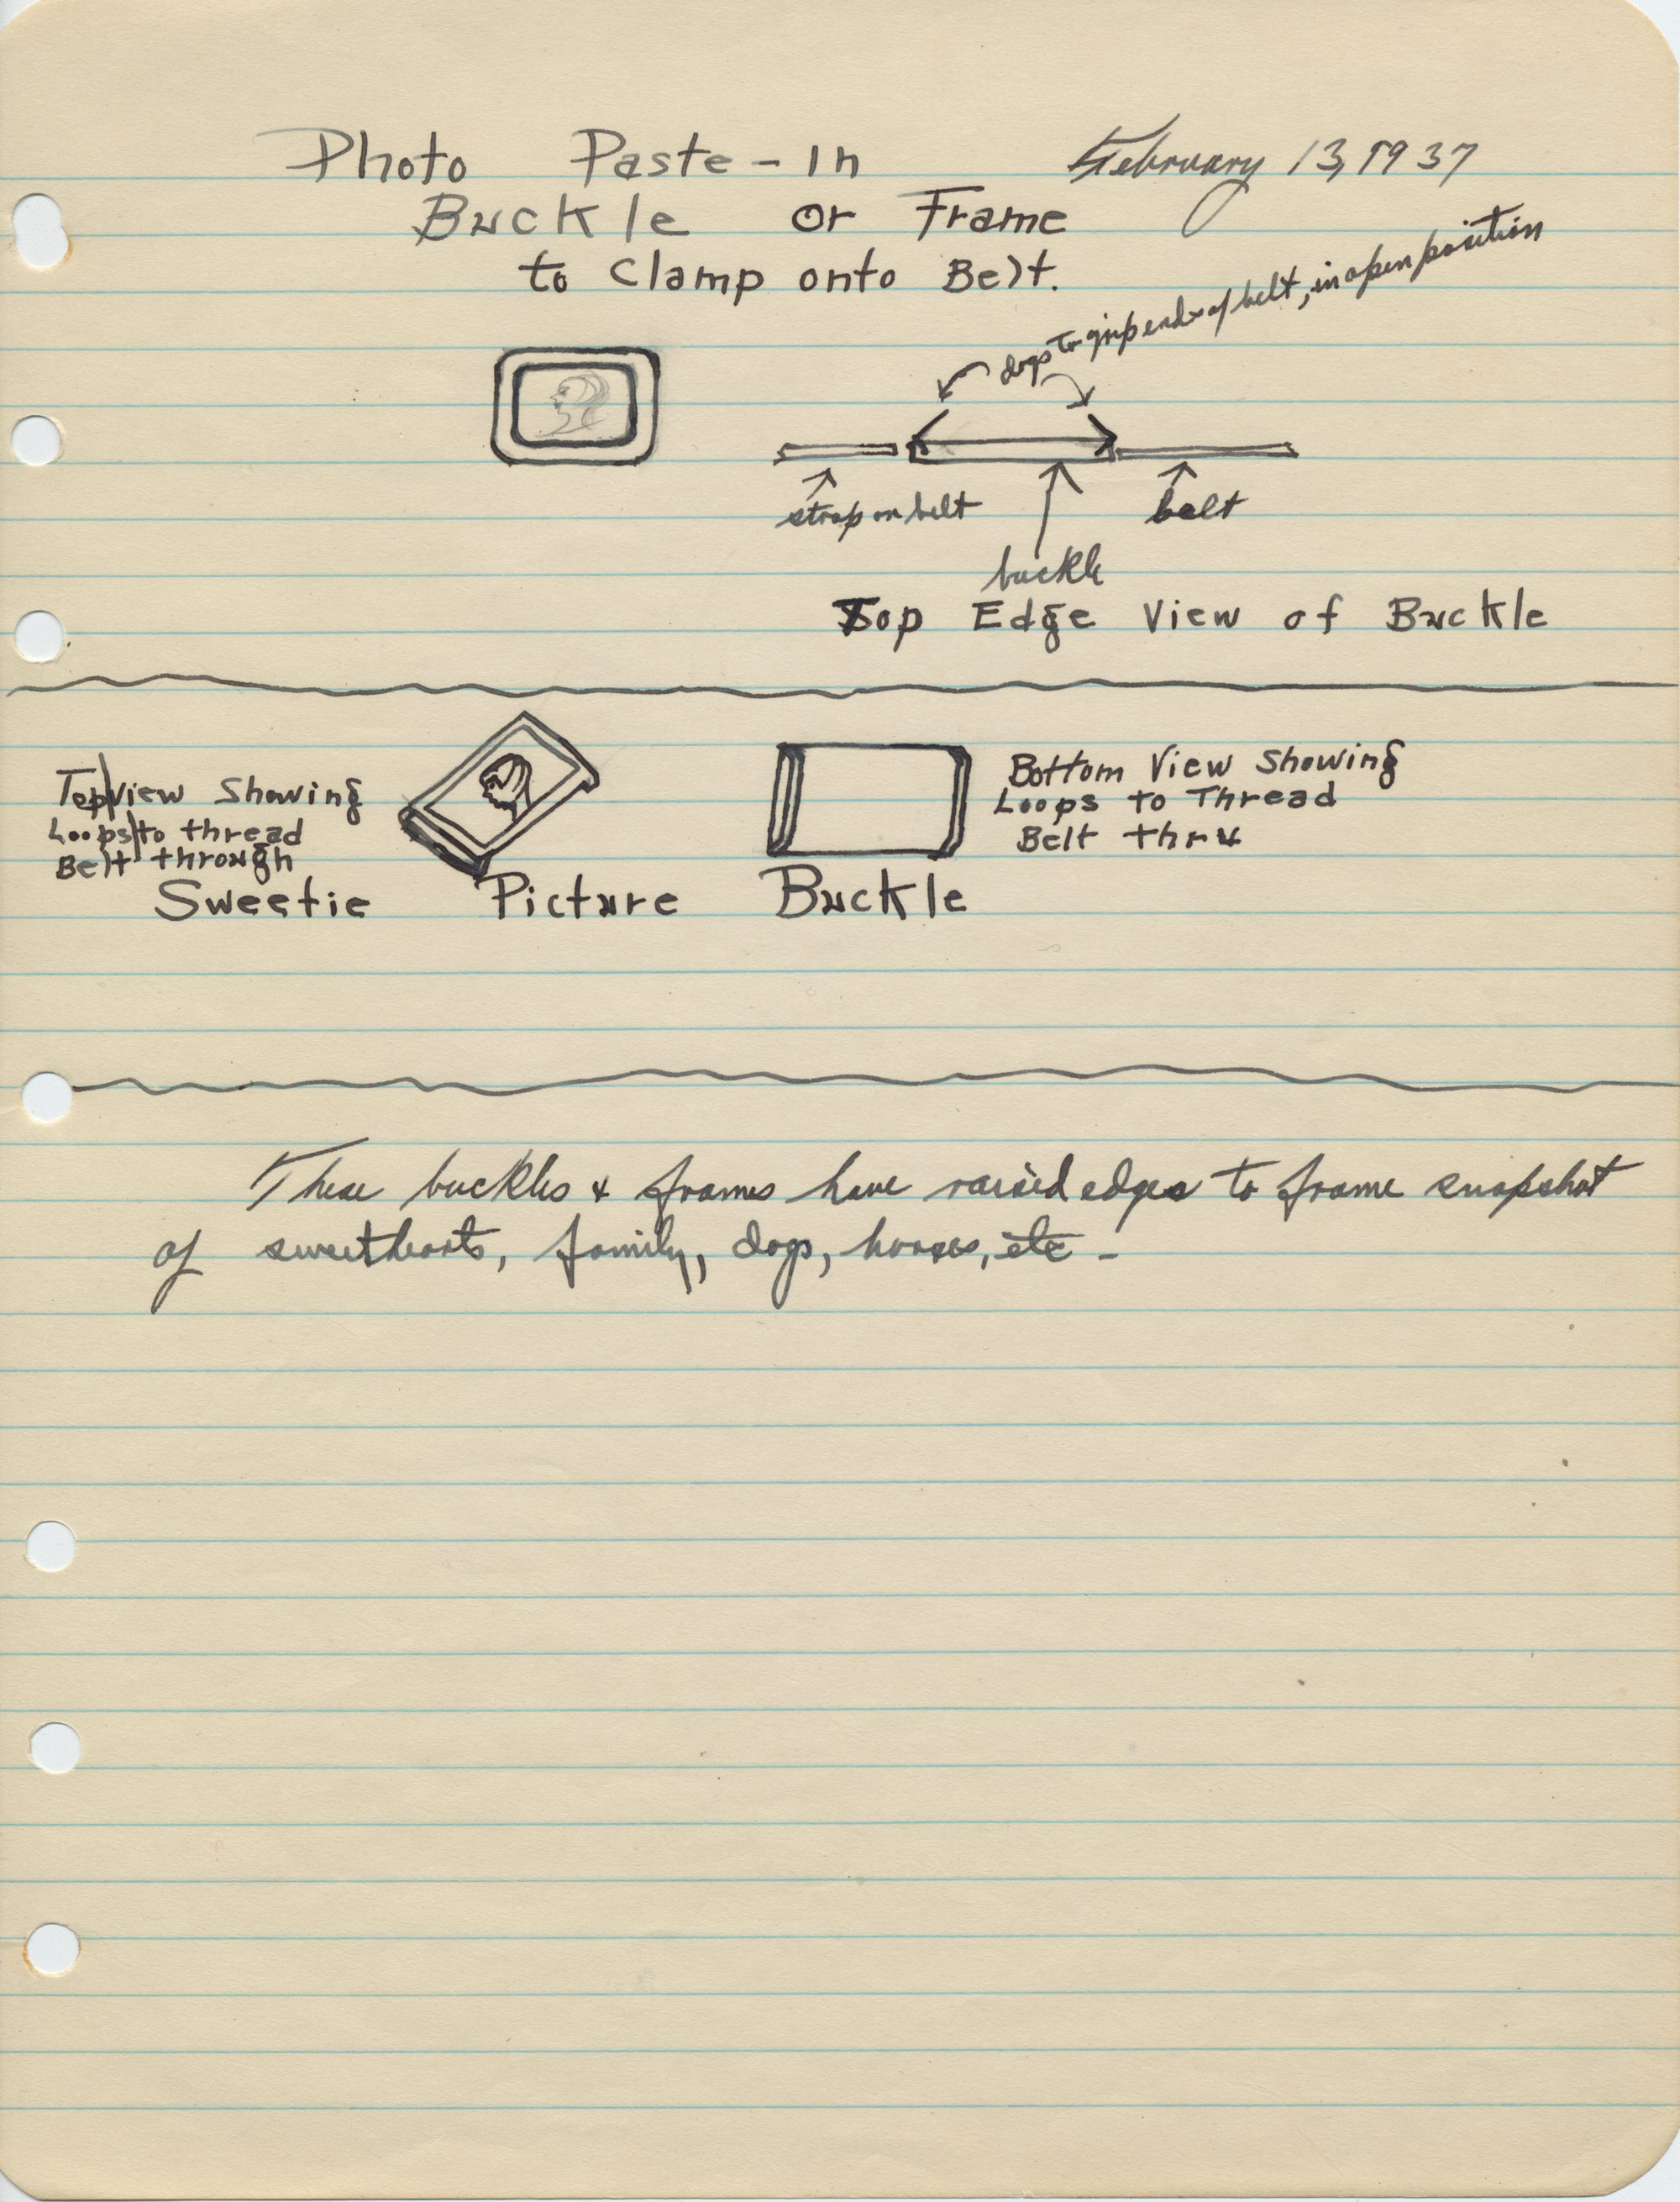 Photo Paste-In
February 13, 1937
Buckle or Frame
to Clamp onto Belt.
dogs to grip ends of belt, in open position
strap on belt
belt
buckle
Top Edge View of Buckle
Top View Showing
Loops to thread
Belt through
Bottom View Showing
Loops to Thread
Belt thru
Sweetie Picture Buckle
These buckles & frames have raised edges to frame snapshot
of sweethearts, family, dogs, horses, etc -